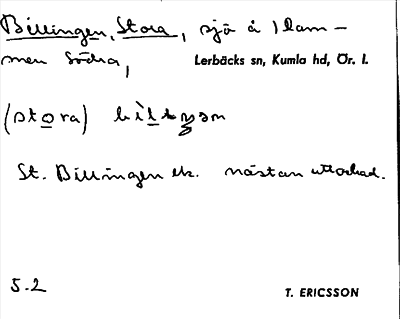 Billingen, Stora, sjö å Dam-
men Södra,
Lerbäcks sn, Kumla hd, Ör. l.
(stora)
St. Billingen ek. nästan uttorkad.
5.2
T. ERICSSON